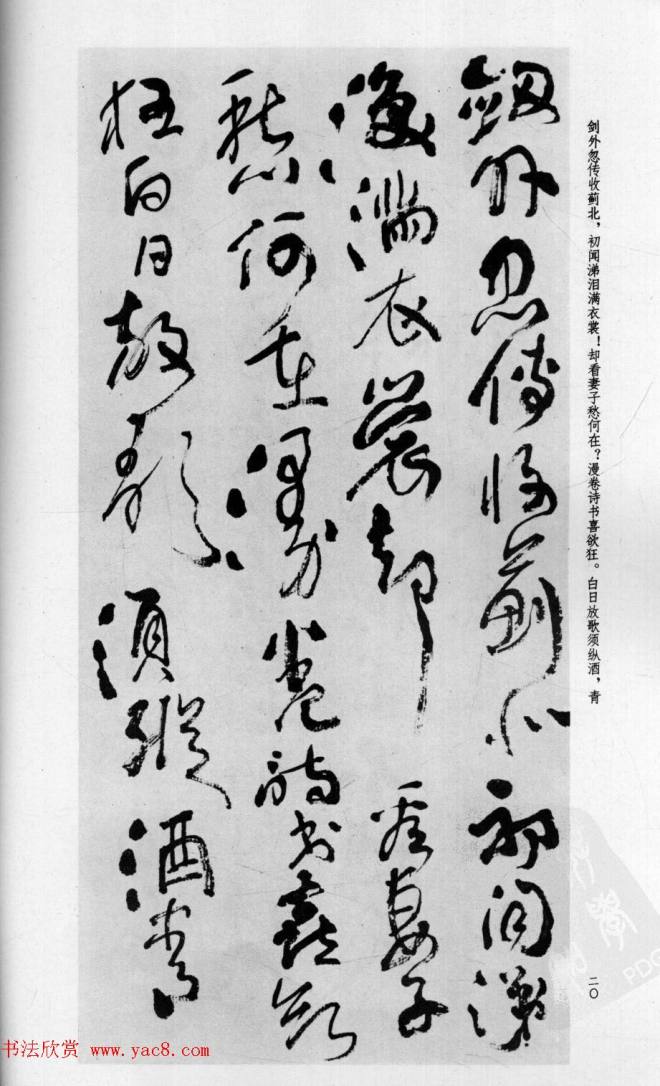 剑外忽传收蓟北，初闻涕泪满衣裳！却看妻子愁何在？漫卷诗书喜欲狂。白日放歌须纵酒，青
二〇
劔外忽傳收薊北初聞涕
淚滿衣裳却看妻子
愁何在漫卷詩書喜欲
狂白日放歌須縱酒青
书法欣赏 www.yac8.com
PDG